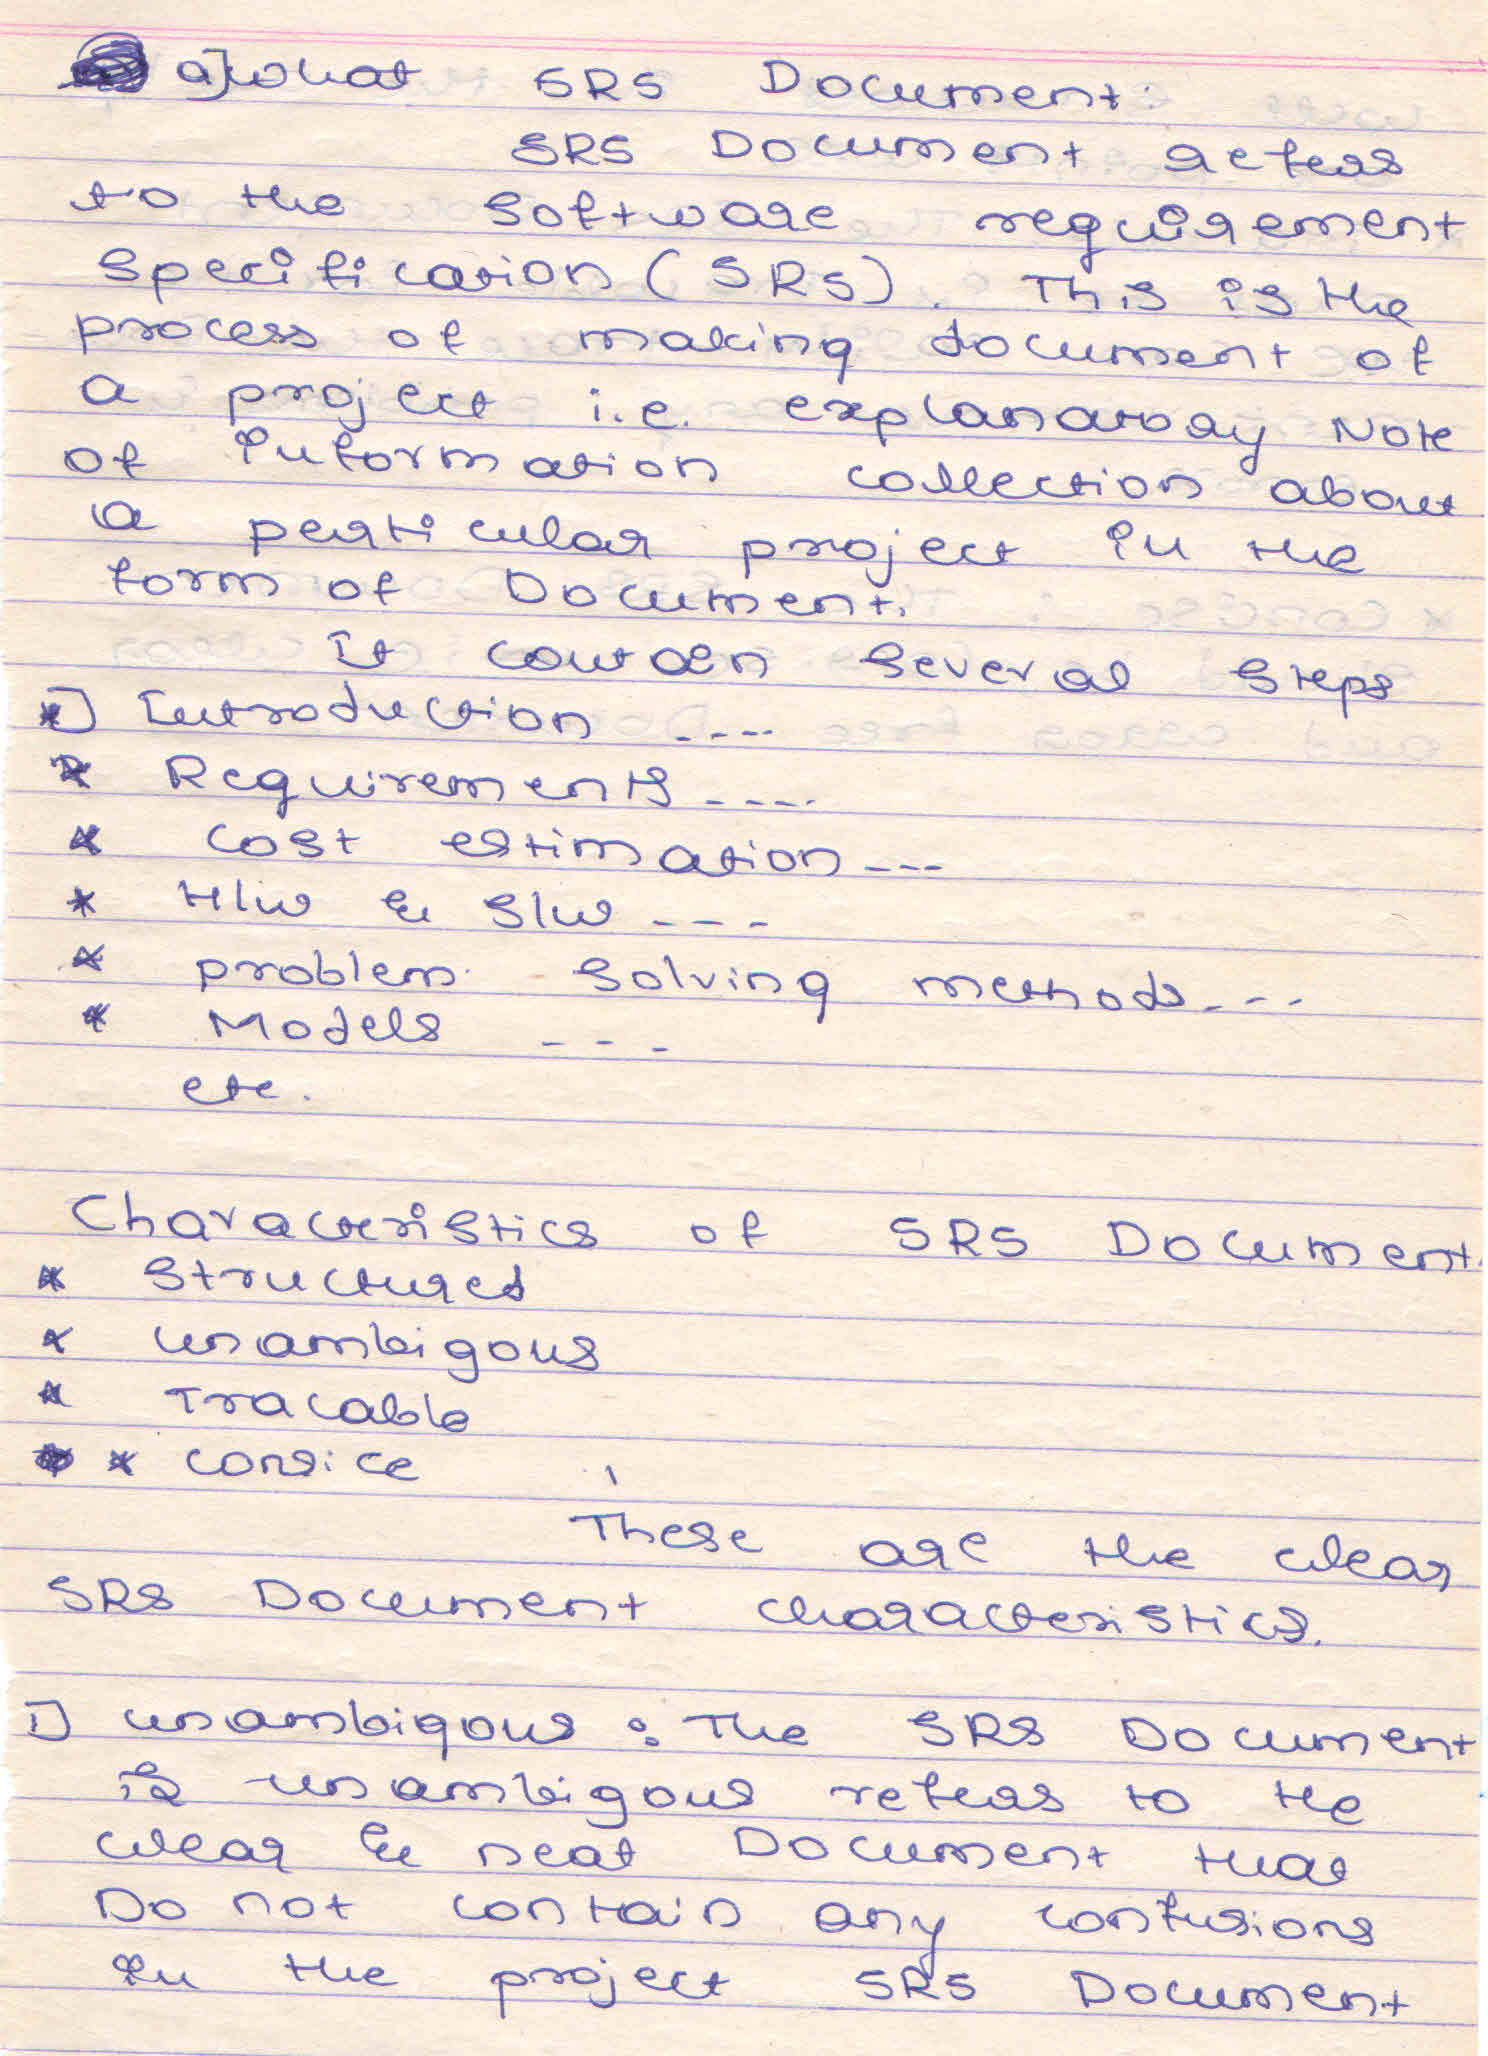 a] what SRS Document:
SRS Document refers
to the software requirement
specification (SRS). This is the
process of making document of
a project i.e. explanatory Note
of information collection about
a perticular project in the
form of Document.
It contain several steps
*] Introduction ----
* Requirements ----
* cost estimation ---
* H/w & S/w ---
* problem solving methods ---
* Models ---
etc.
Characteristics of SRS Document
* structured
* unambigous
* Tracable
* consice
These are the clear
SRS Document characteristics.
1] unambigous : The SRS Document
is unambigous refers to the
clear & neat Document that
Do not contain any confusions
in the project SRS Document